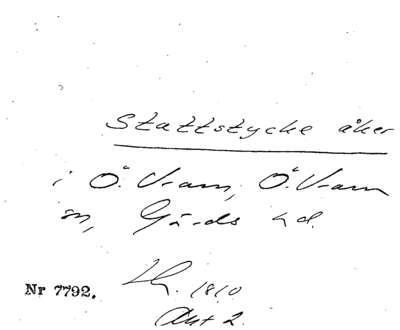 Stattstycke åker
i Ö. Vram, Ö. Vram
sn, Gärds hd.
Nr 7792.
1810
Akt 2.